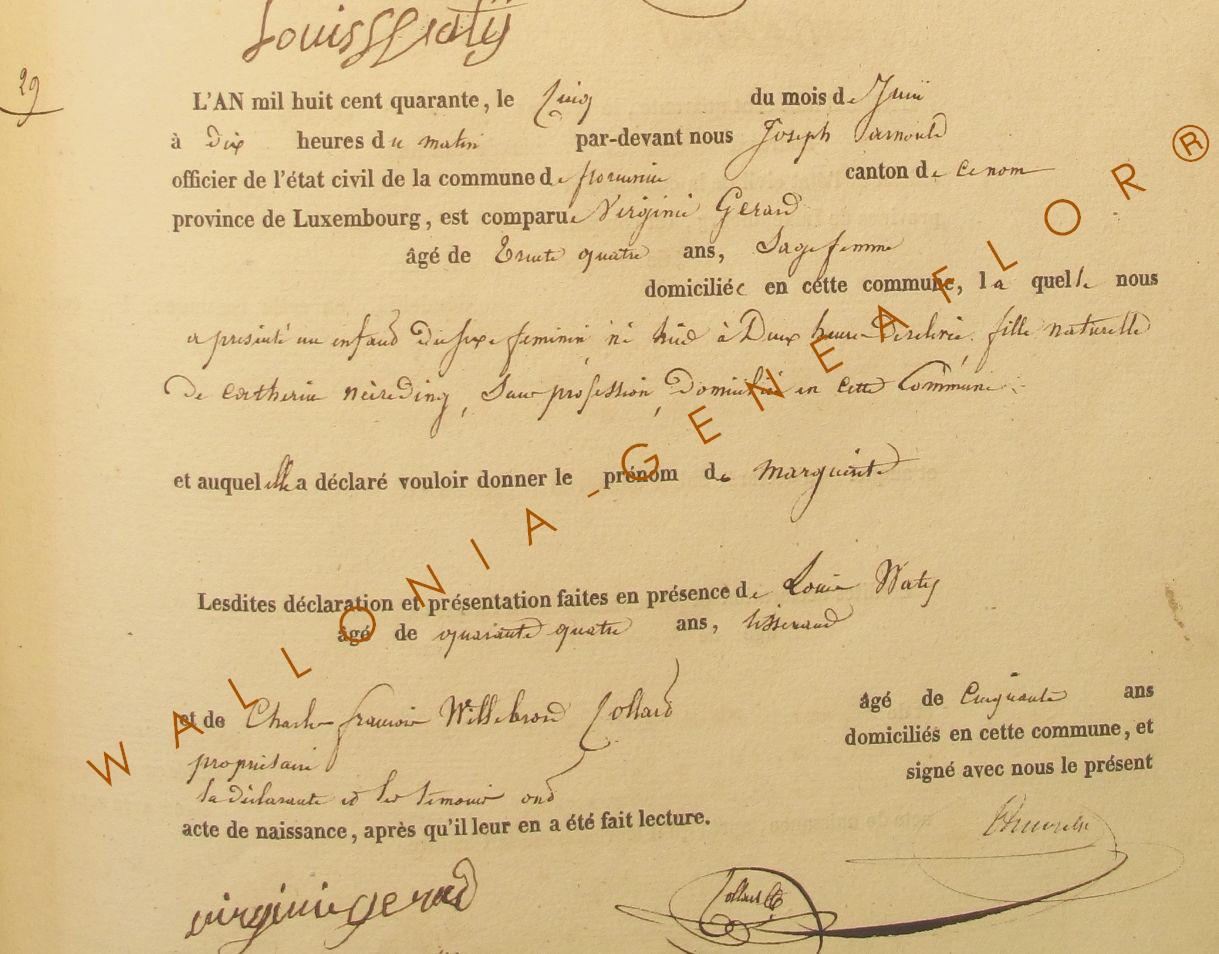 Louis Watÿ
29
L'AN mil huit cent quarante, le Cinq du mois de Juin
à dix heures du matin par-devant nous Joseph
officier de l'état civil de la commune de florenville canton de ce nom
province de Luxembourg, est comparue Virginie Gerard
âgé de trente quatre ans, Sage femme
domiciliée en cette commune, la quelle nous
a présenté un enfant du sexe feminin né à Deux heure fille naturelle
De catherine neireding, Sans profession, Domiciliée en cette Commune
et auquel elle a déclaré vouloir donner le prénom de marguerite
Lesdites déclaration et présentation faites en présence de Louis Waty
âgé de quarante quatre ans, tisserand
et de Charles françois Willebrord Collard âgé de Cinquante ans
propriétaire domiciliés en cette commune, et
signé avec nous le présent
la déclarante et les temoins ont
acte de naissance, après qu'il leur en a été fait lecture.
virginie gerard Collard
WALLONIA-GENEAFLOR®